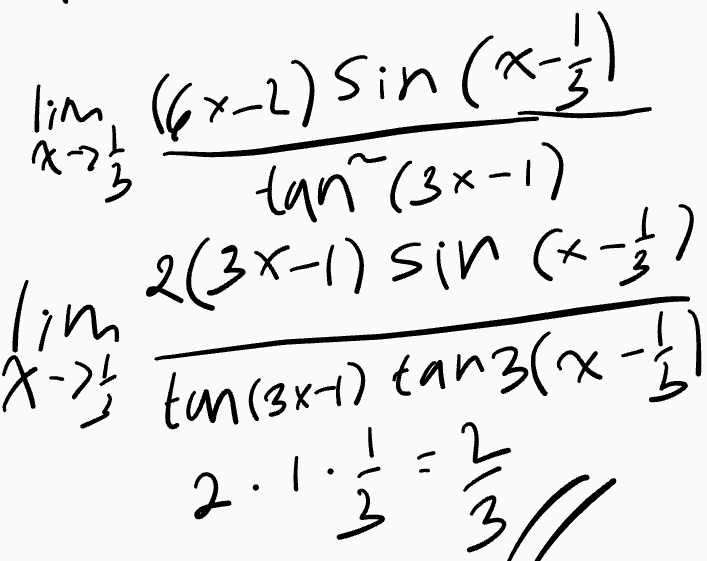 lim x→1/3 (6x-2) sin (x-1/3) / tan² (3x-1)
lim x→1/3 2(3x-1) sin (x-1/3) / tan(3x-1) tan3(x-1/3)
2 · 1 · 1/3 = 2/3 //